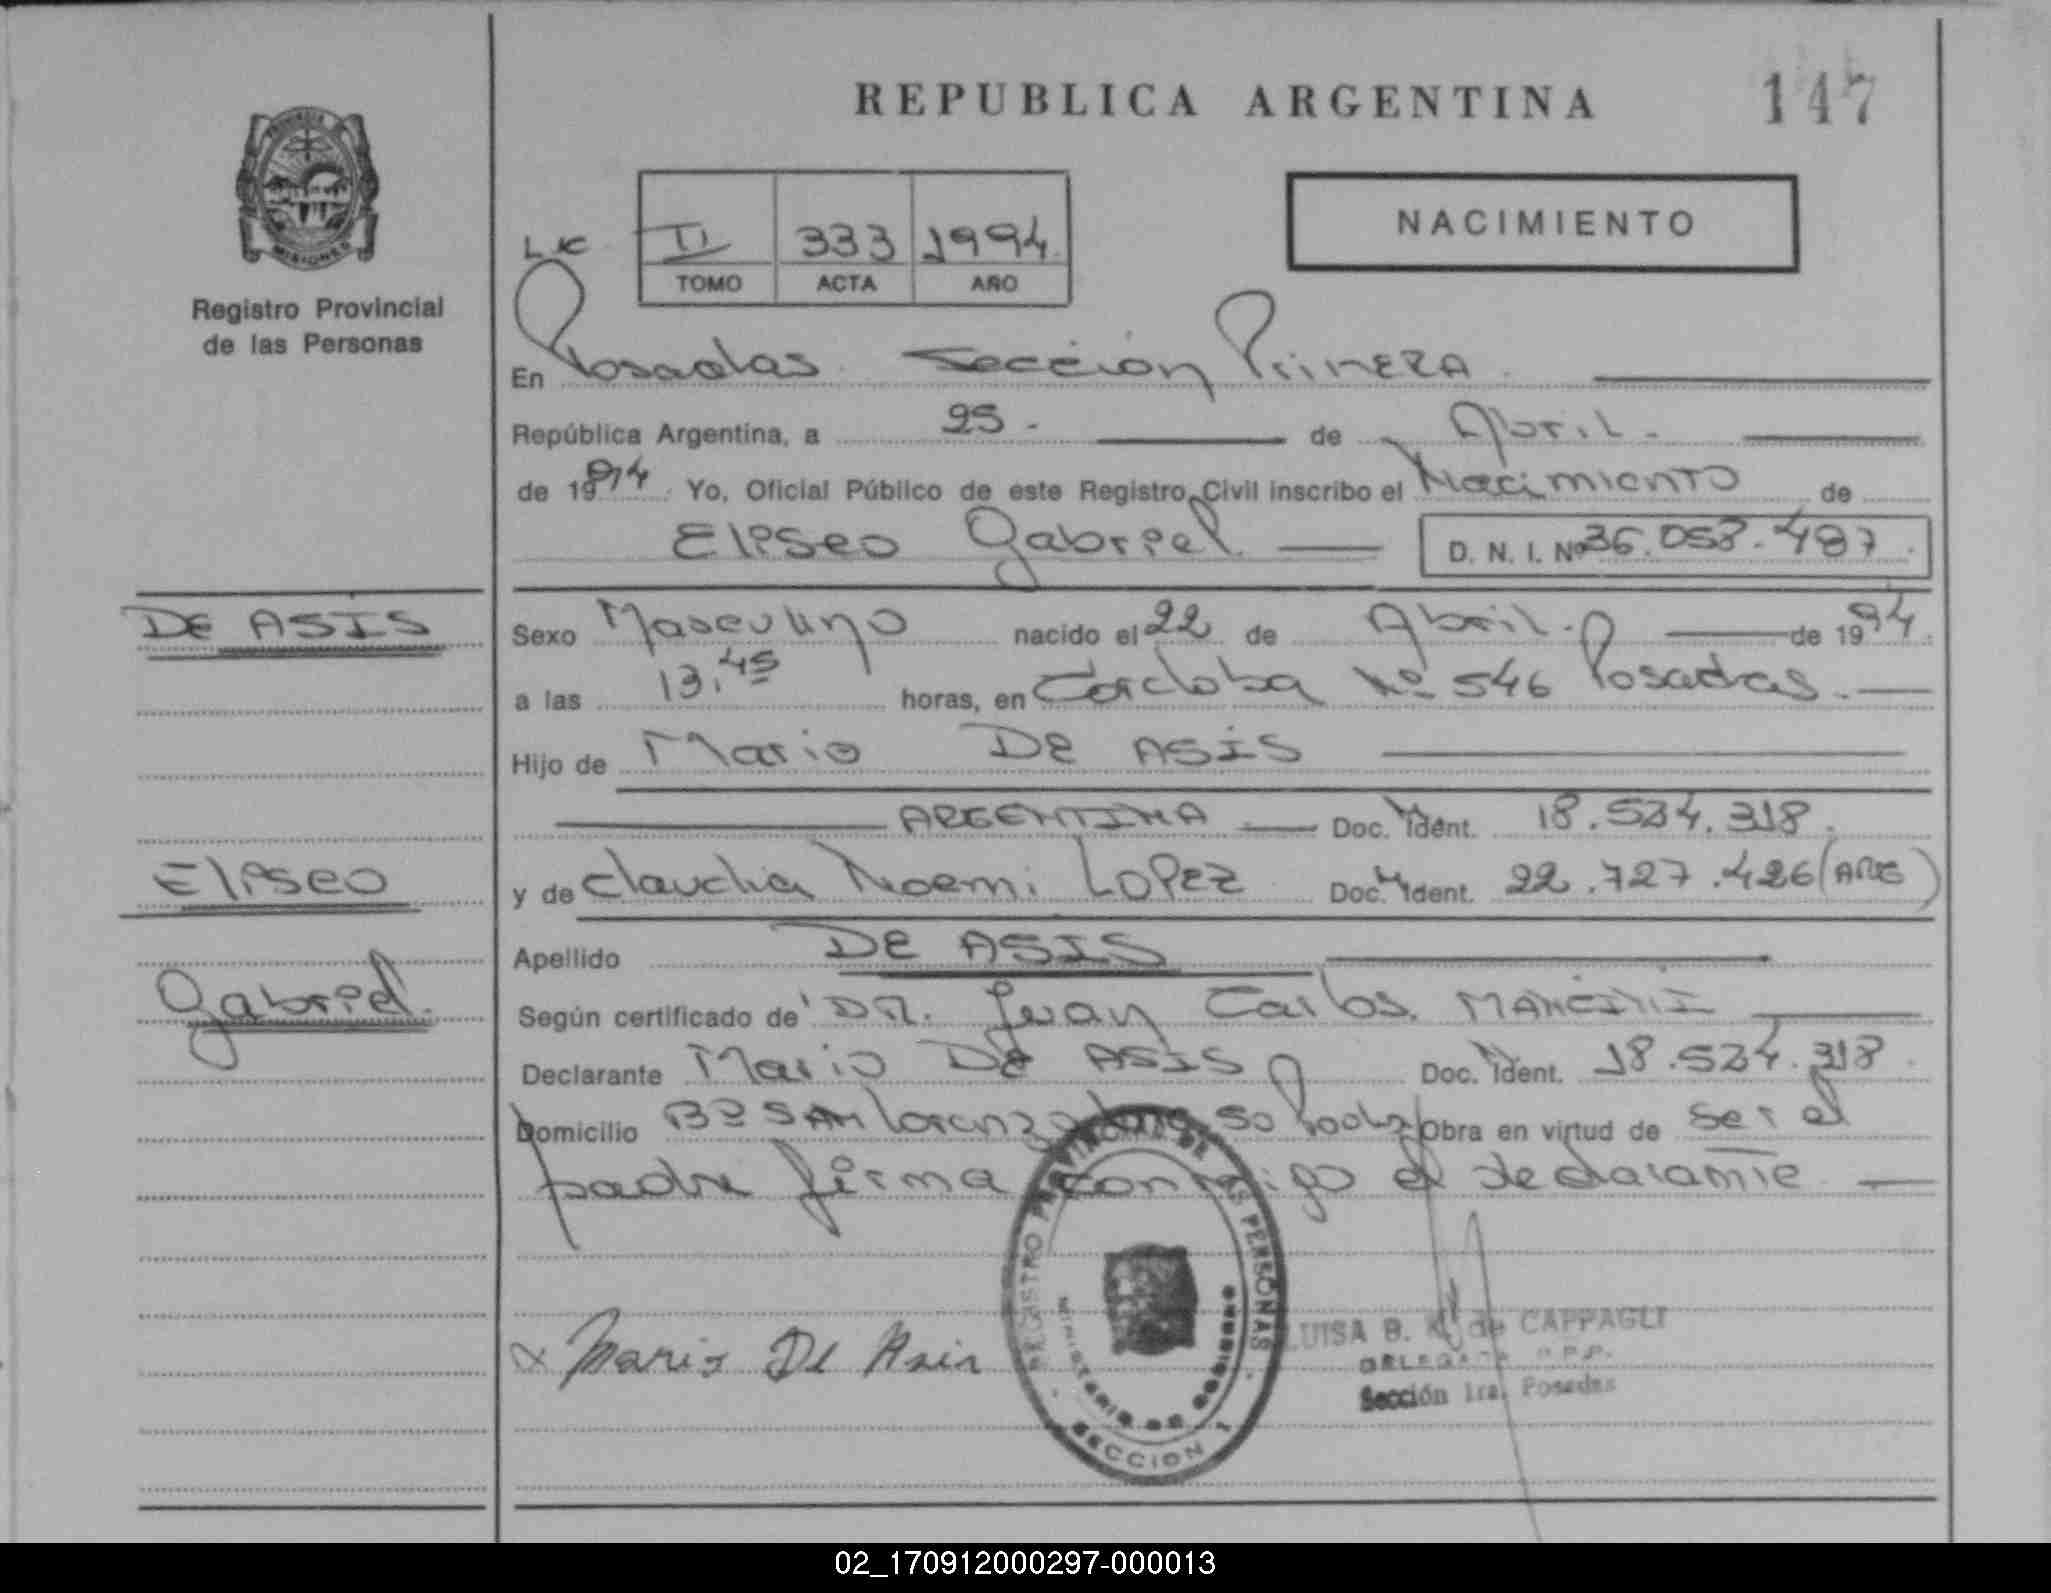 REPUBLICA ARGENTINA
147
PROVINCIA DE MISIONES
Registro Provincial
de las Personas
II 333 1994
TOMO ACTA AÑO
NACIMIENTO
En Posadas Sección Primera
República Argentina, a 25 de Abril
de 1994 Yo, Oficial Público de este Registro Civil inscribo el Nacimiento de
Eliseo Gabriel D. N. I. Nº 36.058.487
DE ASIS
Sexo Masculino nacido el 22 de Abril de 1994
a las 13,45 horas, en Cordoba Nº 546 Posadas
Hijo de Mario DE ASIS
ARGENTINA Doc. Ident. 18.534.318
Eliseo
y de Claudia Noemi LOPEZ Doc. Ident. 22.727.426 (ARG)
Apellido DE ASIS
Gabriel
Según certificado de DR. Juan Carlos MANCINI
Declarante Mario DE ASIS Doc. Ident. 18.534.318
Domicilio Bº SAN Lorenzo 50 Obra en virtud de ser el
padre firma conmigo el declarante
REGISTRO PROVINCIAL DE LAS PERSONAS
MINISTERIO DE GOBIERNO
SECCION 1
Mario De Asis
LUISA B. K. de CAPPAGLI
DELEGADA R.P.P.
Sección 1ra. Posadas
02_170912000297-000013